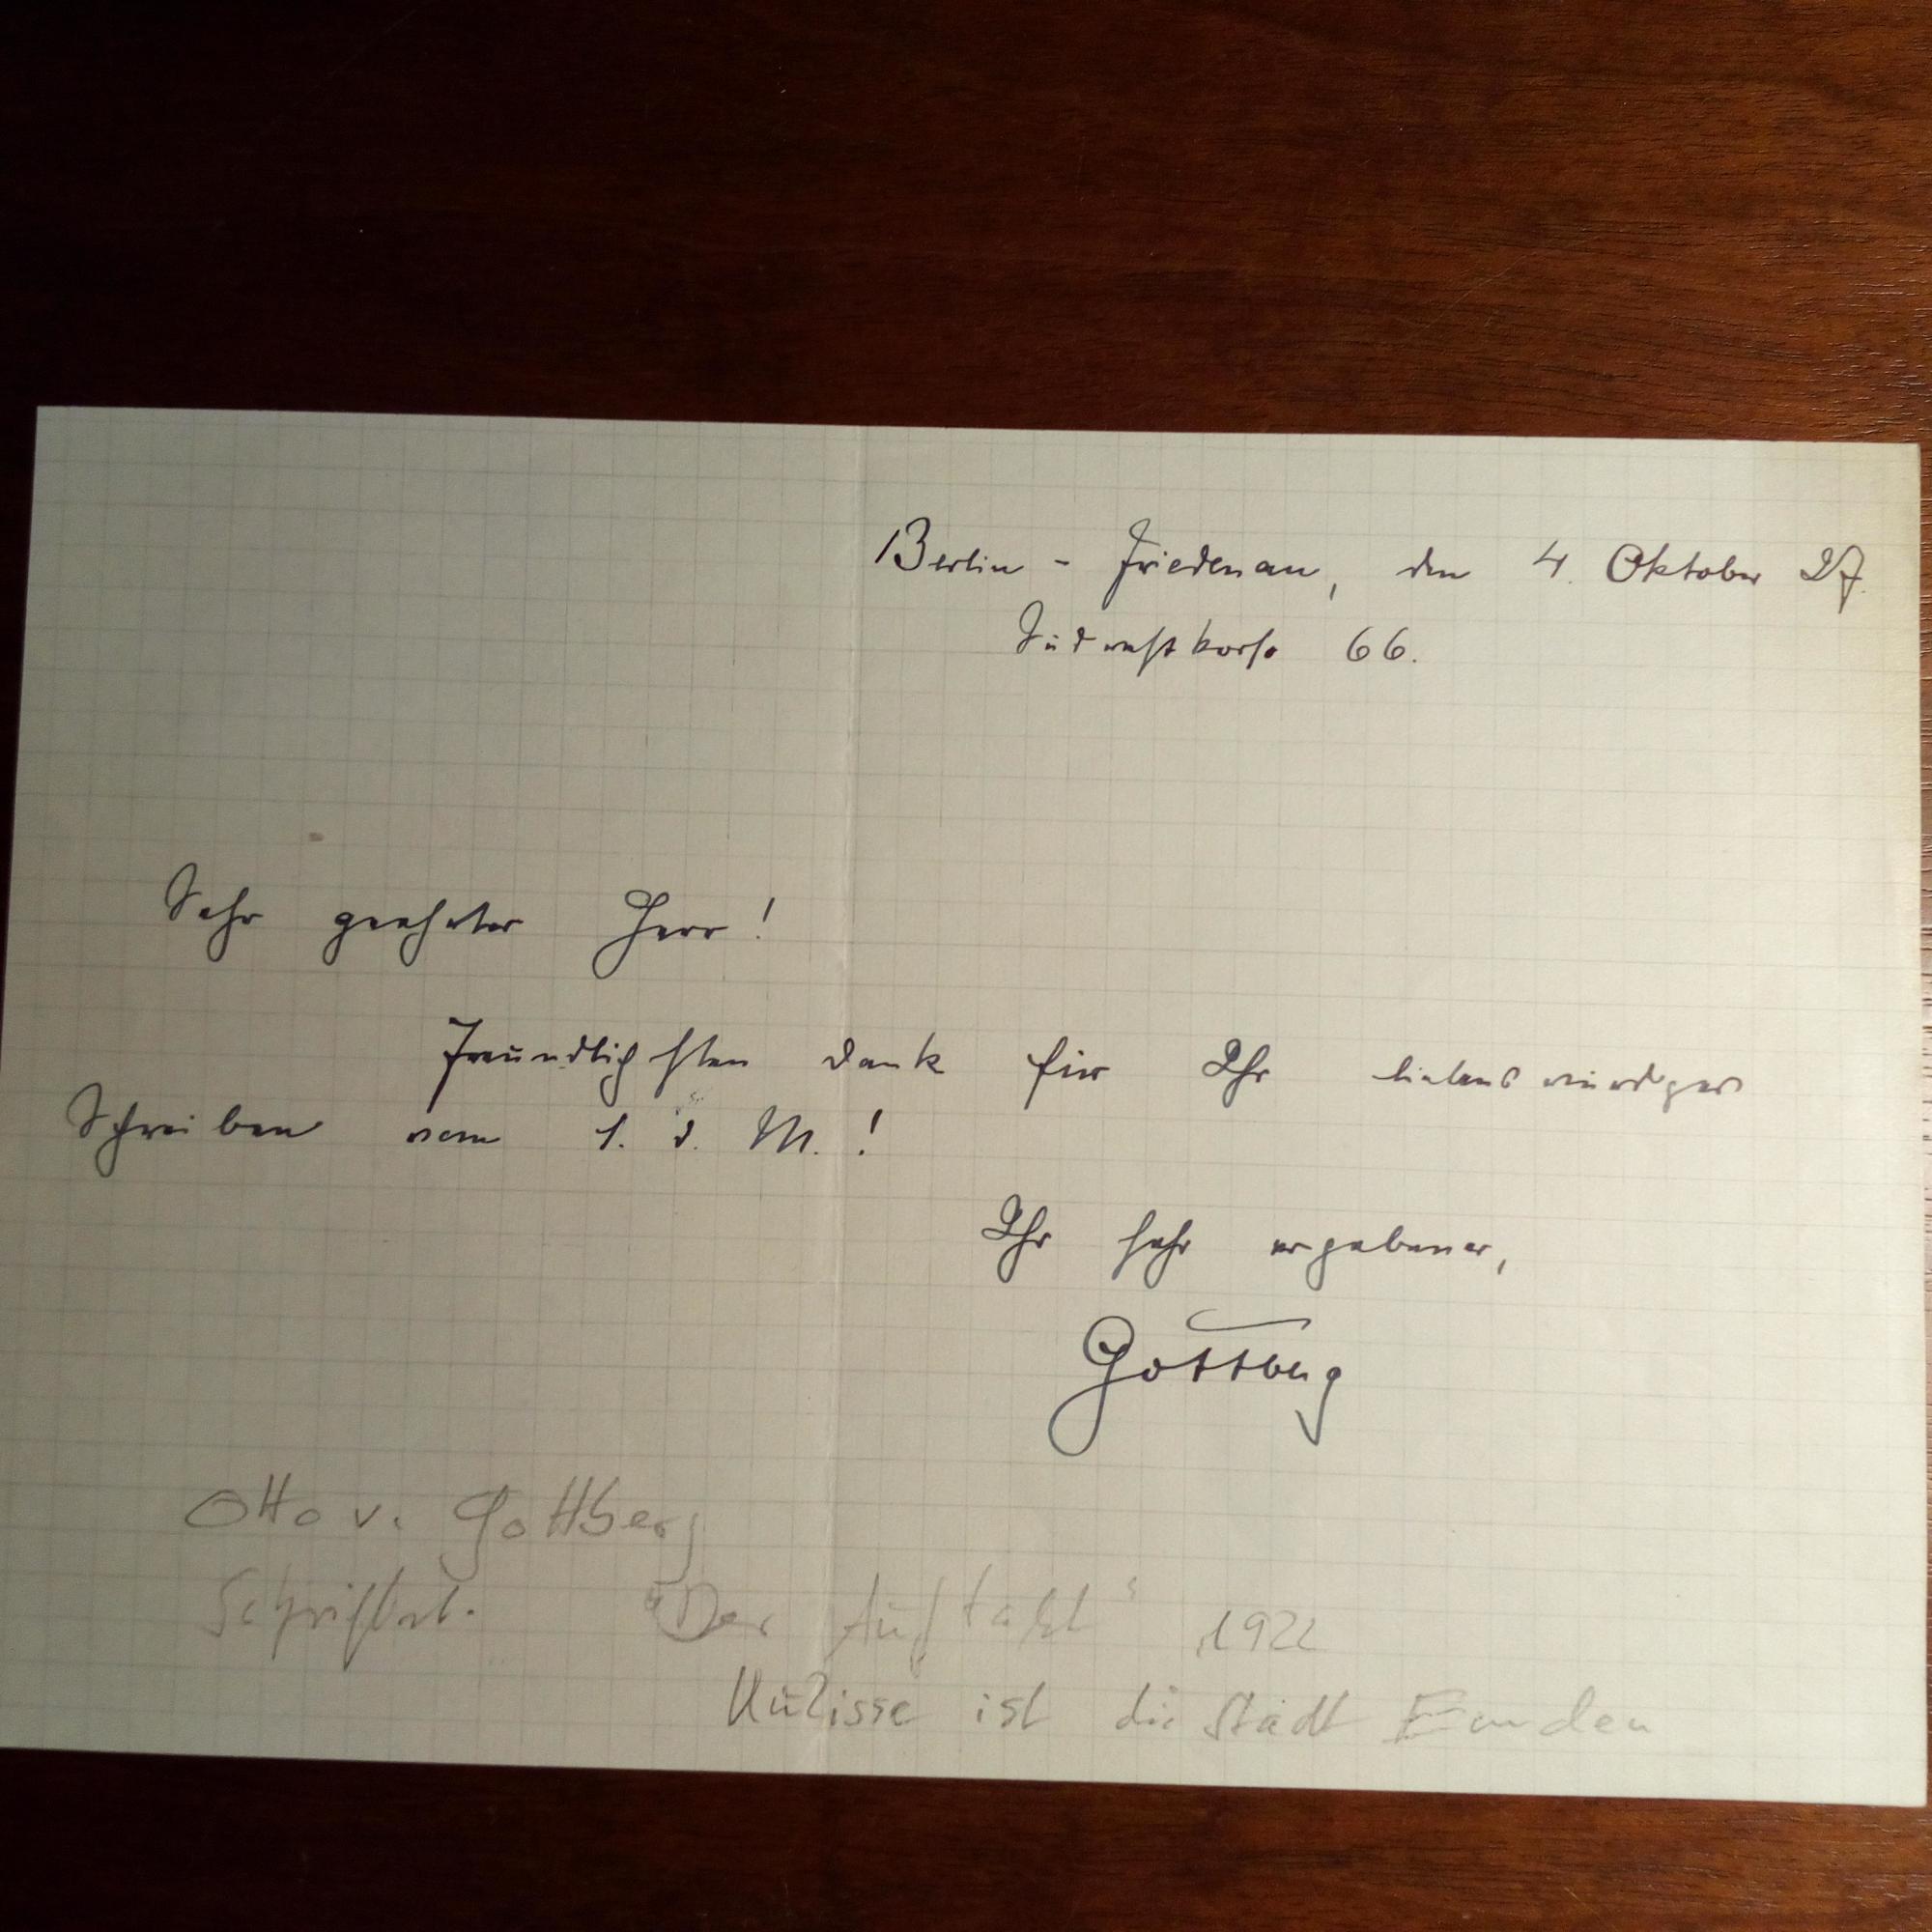 Berlin - Friedenau, den 4. Oktober 27.
Südwestkorso 66.
Sehr geehrter Herr!
Freundlichsten Dank für Ihr liebenswürdiges
Schreiben vom 1. d. M.!
Ihr sehr ergebener,
Gottberg
Otto v. Gottberg
Schriftst. "Der Auftakt" 1922
Kulisse ist die Stadt Emden